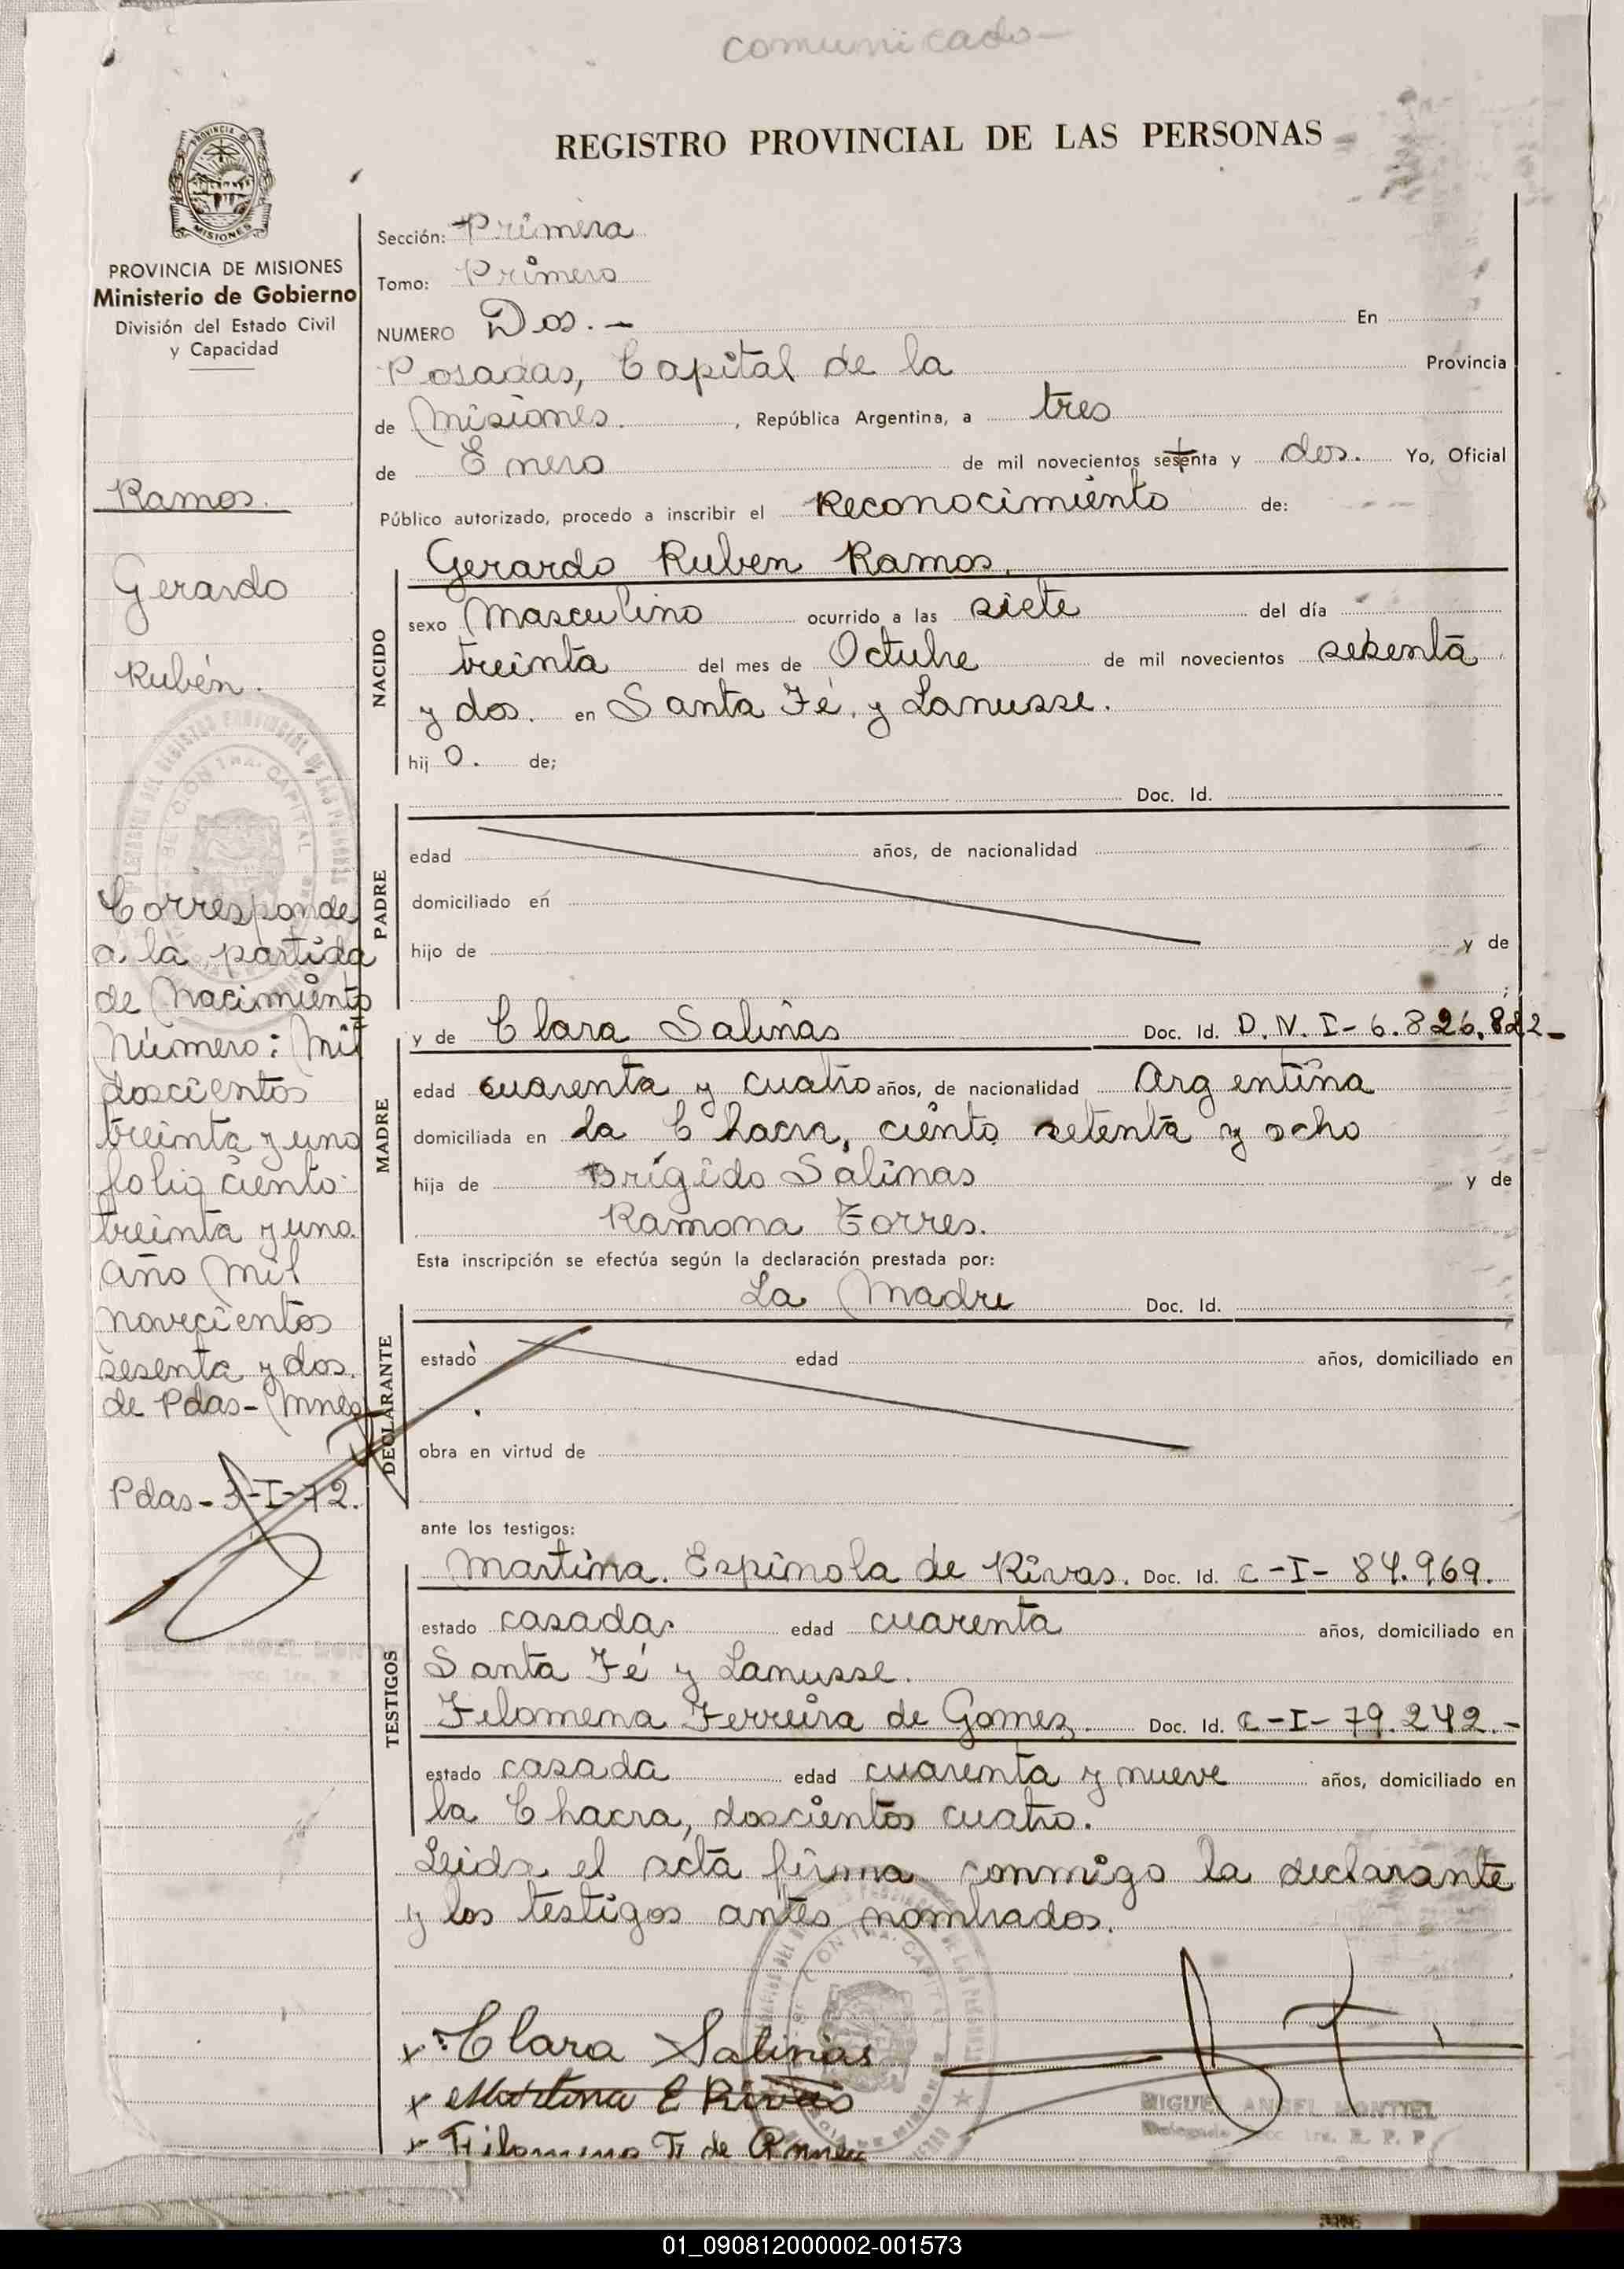 comunicado-
REGISTRO PROVINCIAL DE LAS PERSONAS
PROVINCIA DE
MISIONES
PROVINCIA DE MISIONES
Ministerio de Gobierno
División del Estado Civil
y Capacidad
Ramos.
Gerardo
Rubén.
Corresponde
a la partida
de Nacimiento
Número: Mil
doscientos
treinta y uno
folio ciento
treinta y uno.
año mil
novecientos
sesenta y dos.
de Pdas-Mnes
Pdas-3-I-72.
Sección: Primera
Tomo: Primero
NUMERO Dos.- En
Posadas, Capital de la Provincia
de Misiones. , República Argentina, a tres
de Enero de mil novecientos setenta y dos. Yo, Oficial
Público autorizado, procedo a inscribir el Reconocimiento de:
NACIDO
Gerardo Ruben Ramos.
sexo Masculino ocurrido a las siete del día
treinta del mes de Octubre de mil novecientos sesenta
y dos. en Santa Fé y Lanusse.
hij o. de;
PADRE
Doc. Id.
edad años, de nacionalidad
domiciliado en
hijo de y de
;
MADRE
y de Clara Salinas Doc. Id. D.N.I-6.826.822-
edad cuarenta y cuatro años, de nacionalidad Argentina
domiciliada en la Chacra, ciento setenta y ocho
hija de Brígido Salinas y de
Ramona Torres.
Esta inscripción se efectúa según la declaración prestada por:
La Madre Doc. Id.
DECLARANTE
estado edad años, domiciliado en
obra en virtud de
ante los testigos:
TESTIGOS
Martina. Espinola de Rivas. Doc. Id. C-I-84.969.
estado casada. edad cuarenta años, domiciliado en
Santa Fé y Lanusse.
Filomena Ferreira de Gomez. Doc. Id. C-I-79.242.-
estado casada edad cuarenta y nueve años, domiciliado en
la Chacra, doscientos cuatro.
Leida el acta firma conmigo la declarante
y los testigos antes nombrados.
x Clara Salinas
x Martina E Rivas
x Filomena F de Gomez
MIGUEL ANGEL MONTIEL
Delegado Secc. 1ra. R. P. P.
01_090812000002-001573